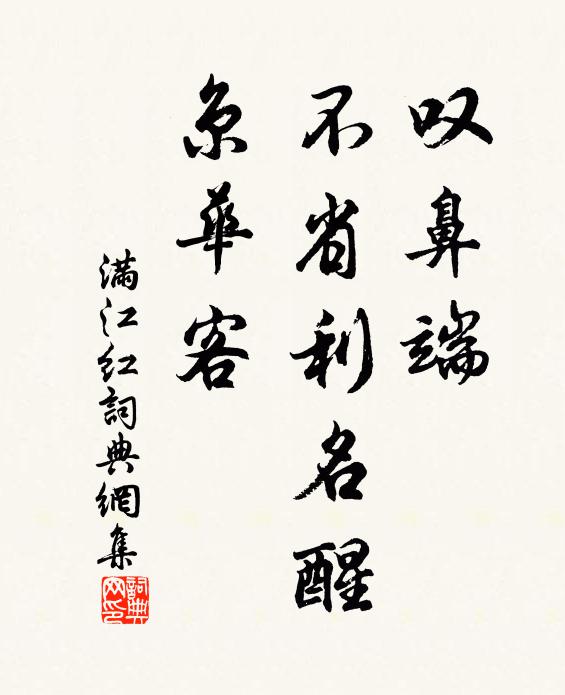 叹鼻端
不省利名醒
京華客
满江红詞典網集
詞典网印